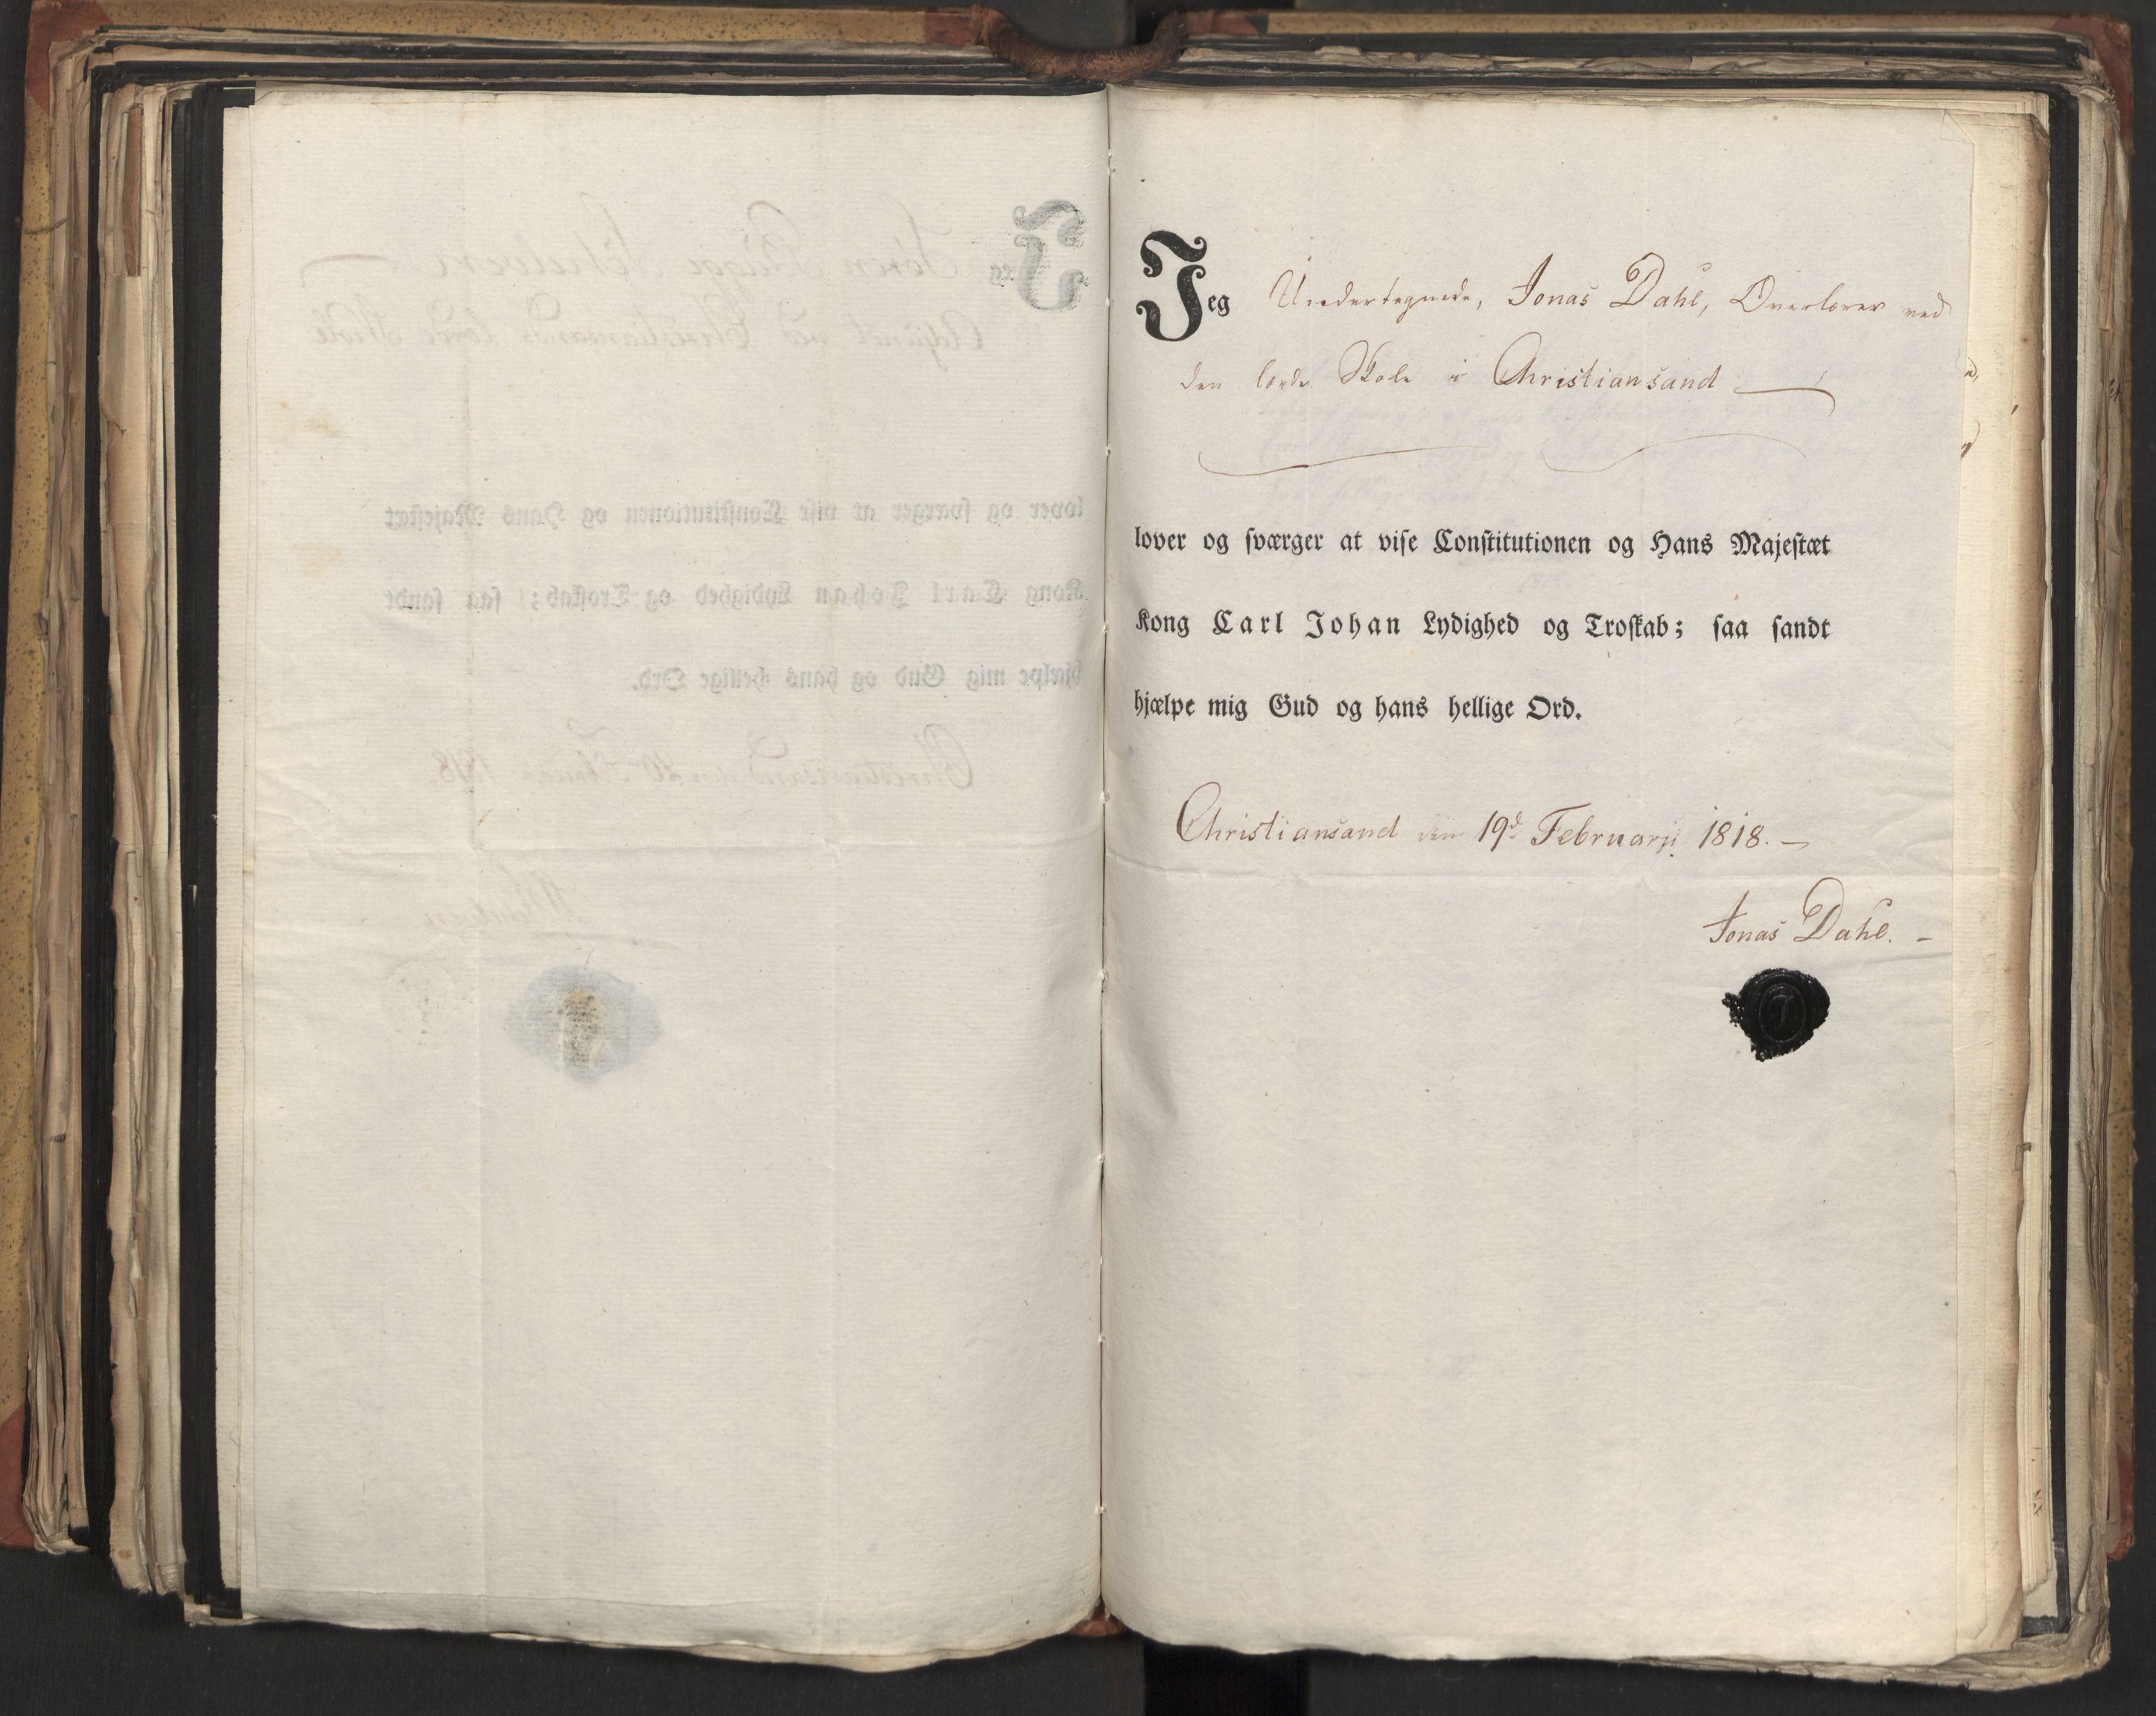 Jeg Undertegnede, Jonas Dahl, Overlærer ved
den lærde Skole i Christiansand
lover og sværger at vise Constitutionen og Hans Majestæt
Kong Carl Johan Lydighed og Troskab; saa sandt
hjælpe mig Gud og hans hellige Ord.
Christiansand den 19d Februarii 1818. -
Jonas Dahl. -